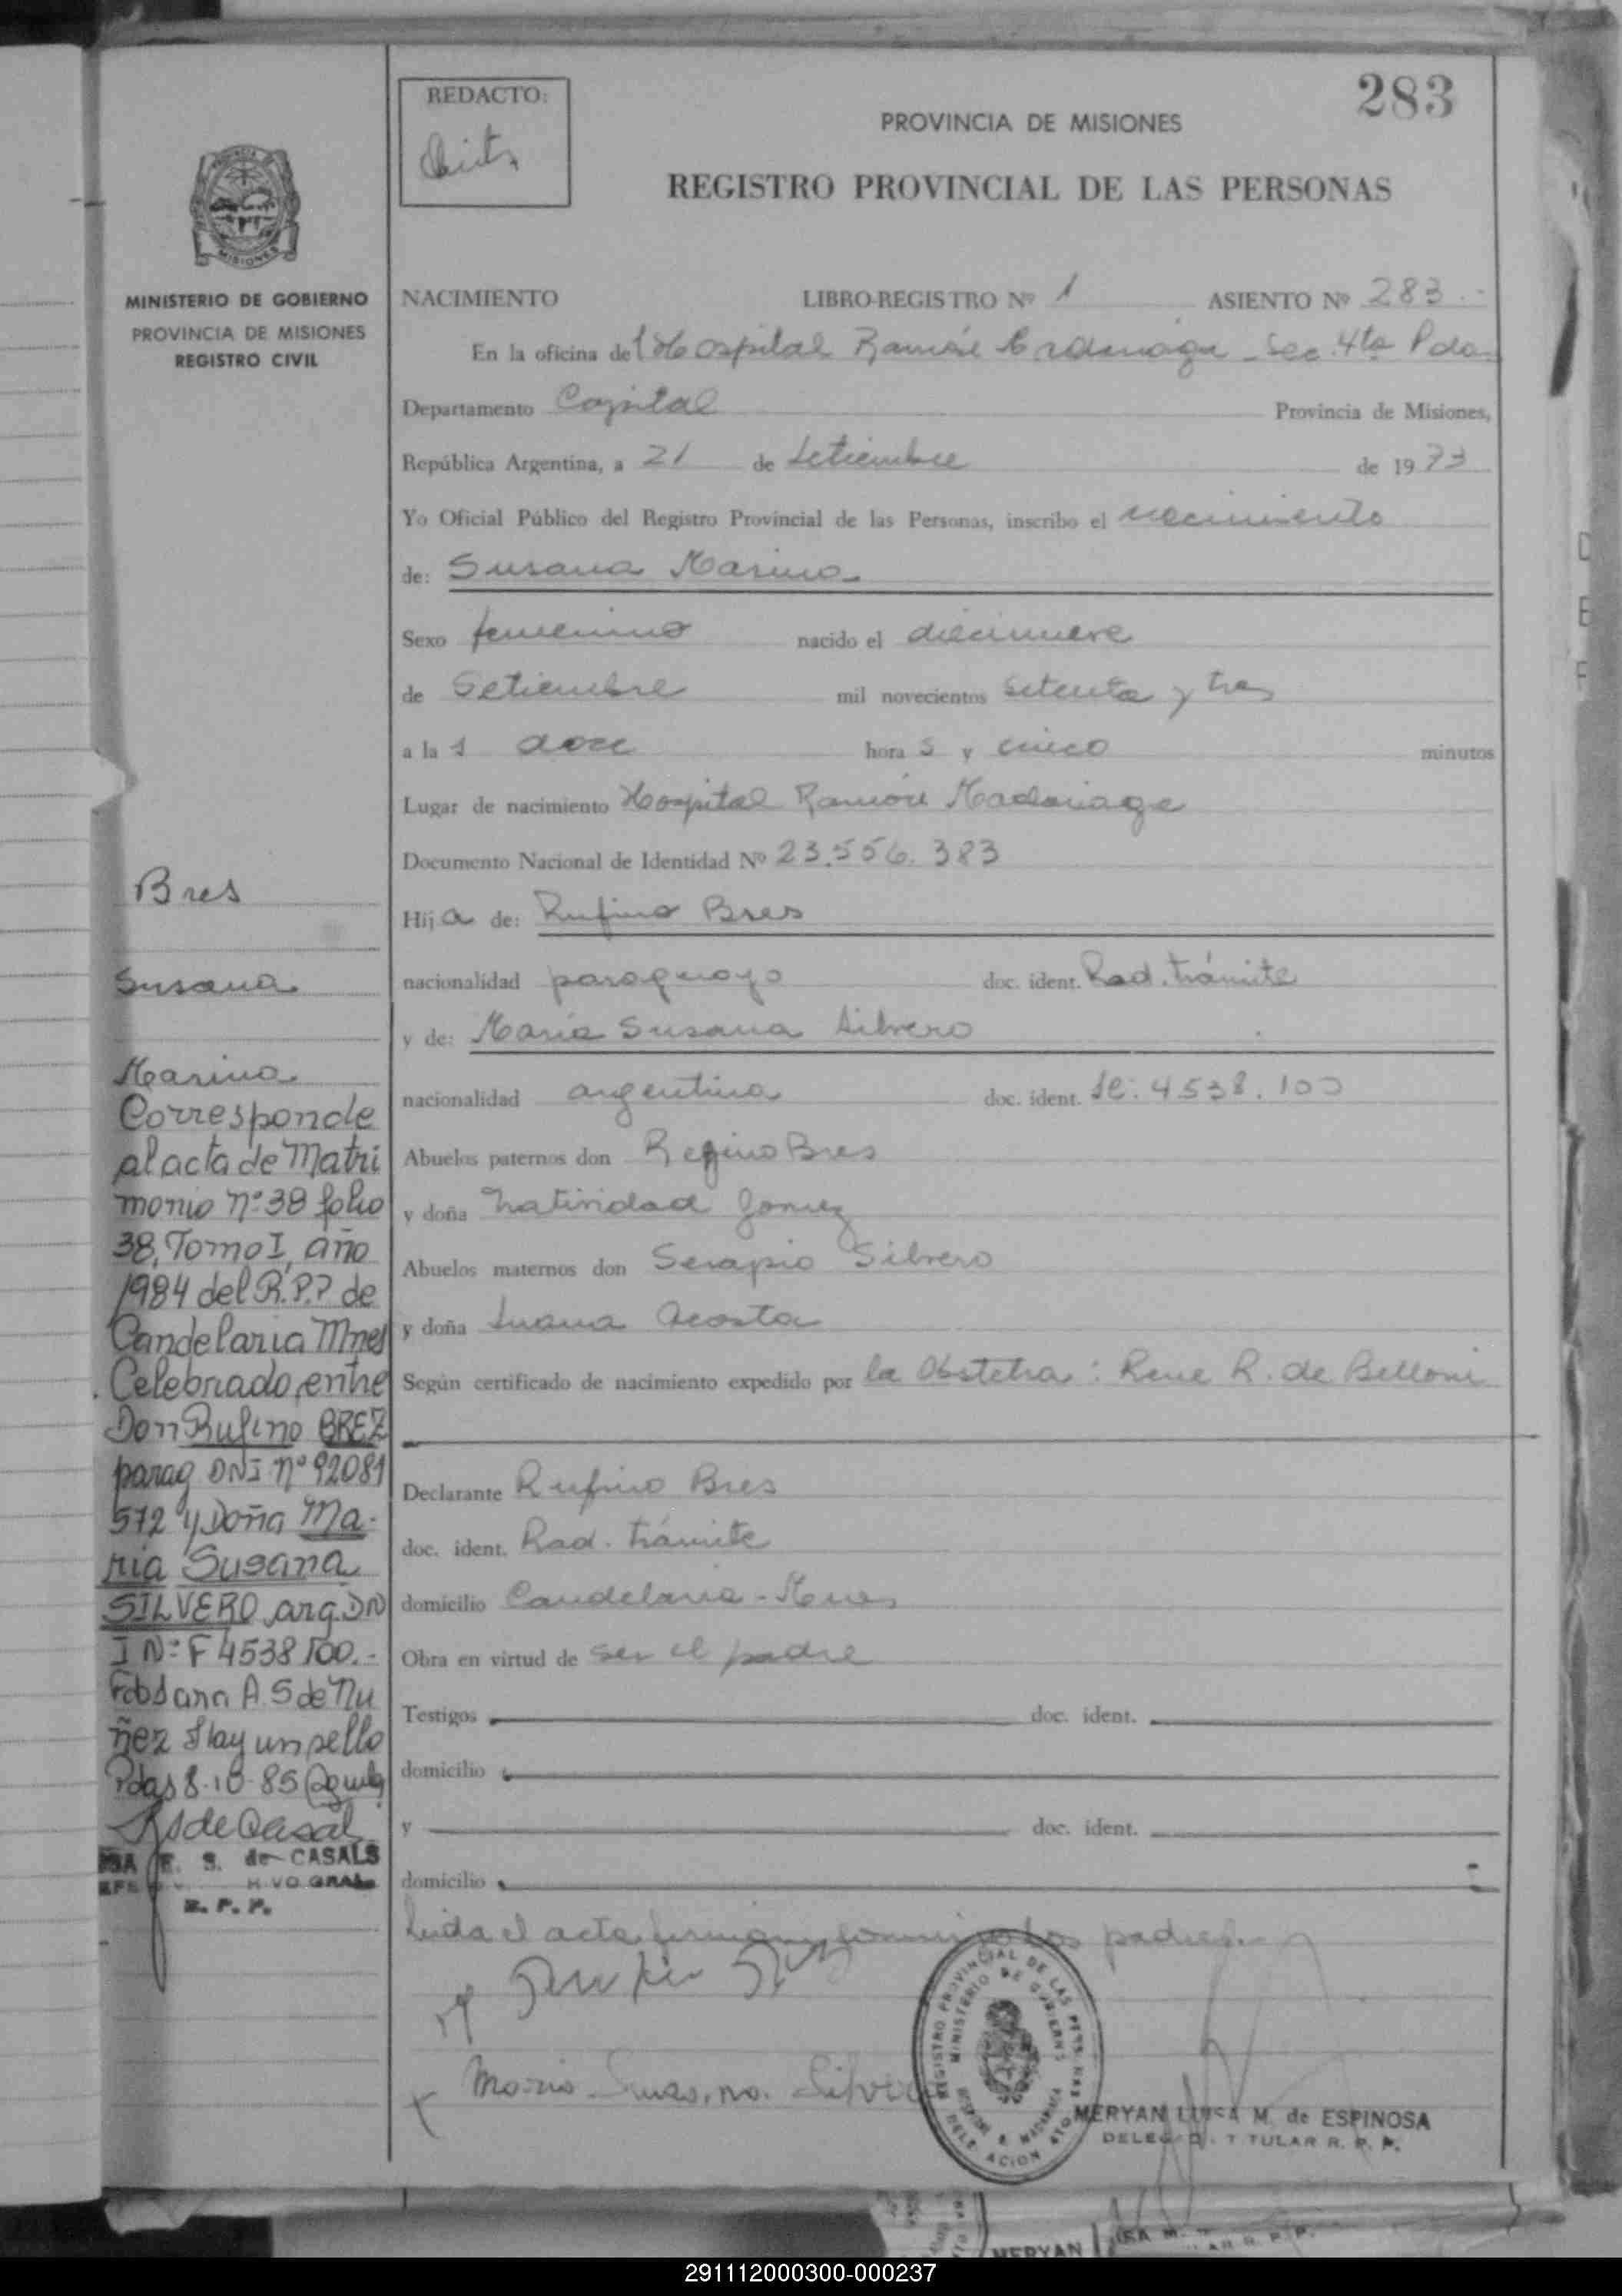 283
REDACTO:
PROVINCIA DE MISIONES
REGISTRO PROVINCIAL DE LAS PERSONAS
PROVINCIA DE
MISIONES
MINISTERIO DE GOBIERNO
PROVINCIA DE MISIONES
REGISTRO CIVIL
NACIMIENTO LIBRO-REGISTRO Nº 1 ASIENTO Nº 283.-
En la oficina del Hospital Ramón Madariaga - Sec. 4ta Pdas
Departamento Capital Provincia de Misiones,
República Argentina, a 21 de Setiembre de 1973
Yo Oficial Público del Registro Provincial de las Personas, inscribo el nacimiento
de: Susana Marina
Sexo femenino nacido el diecinueve
de Setiembre mil novecientos setenta y tres
a las doce horas y cinco minutos
Lugar de nacimiento Hospital Ramón Madariaga
Documento Nacional de Identidad Nº 23.556.383
Hija de: Rufino Bres
nacionalidad paraguayo doc. ident. Rad. trámite
y de: María Susana Silvero
nacionalidad argentina doc. ident. 4.538.100
Abuelos paternos don Regino Bres
y doña Natividad Gomez
Abuelos maternos don Serapio Silvero
y doña Juana Acosta
Según certificado de nacimiento expedido por la Obstetra: Rene R. de Belloni
Declarante Rufino Bres
doc. ident. Rad. trámite
domicilio Candelaria - Mnes
Obra en virtud de ser el padre
Testigos doc. ident.
domicilio
y doc. ident.
domicilio
Leida el acta firman los padres
Maria Susana Silvero
REGISTRO PROVINCIAL DE LAS PERSONAS
MINISTERIO DE GOBIERNO
MERYAN LUISA M. de ESPINOSA
DELEGAD. TITULAR R. P. P.
Bres
Susana
Marina
Corresponde
al acta de Matri
monio nº 38 folio
38, Tomo I, año
1984 del R.P.P de
Candelaria Mnes
Celebrado, entre
Don Rufino BREZ
parag DNI nº 92081
572 y Doña Ma-
ria Susana
SILVERO arg. DN
I Nº F 4538100.-
A. S de Nu
ñez Hay un sello
Pdas 8-10-85
S de Casal
E. S. de CASALS
R. P. P.
MERYAN
291112000300-000237